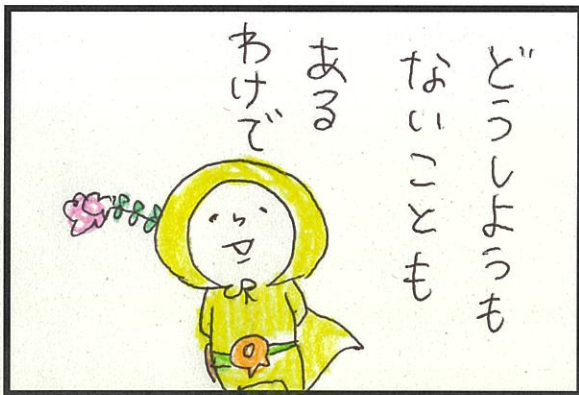 どうしようも
ないことも
ある
わけで